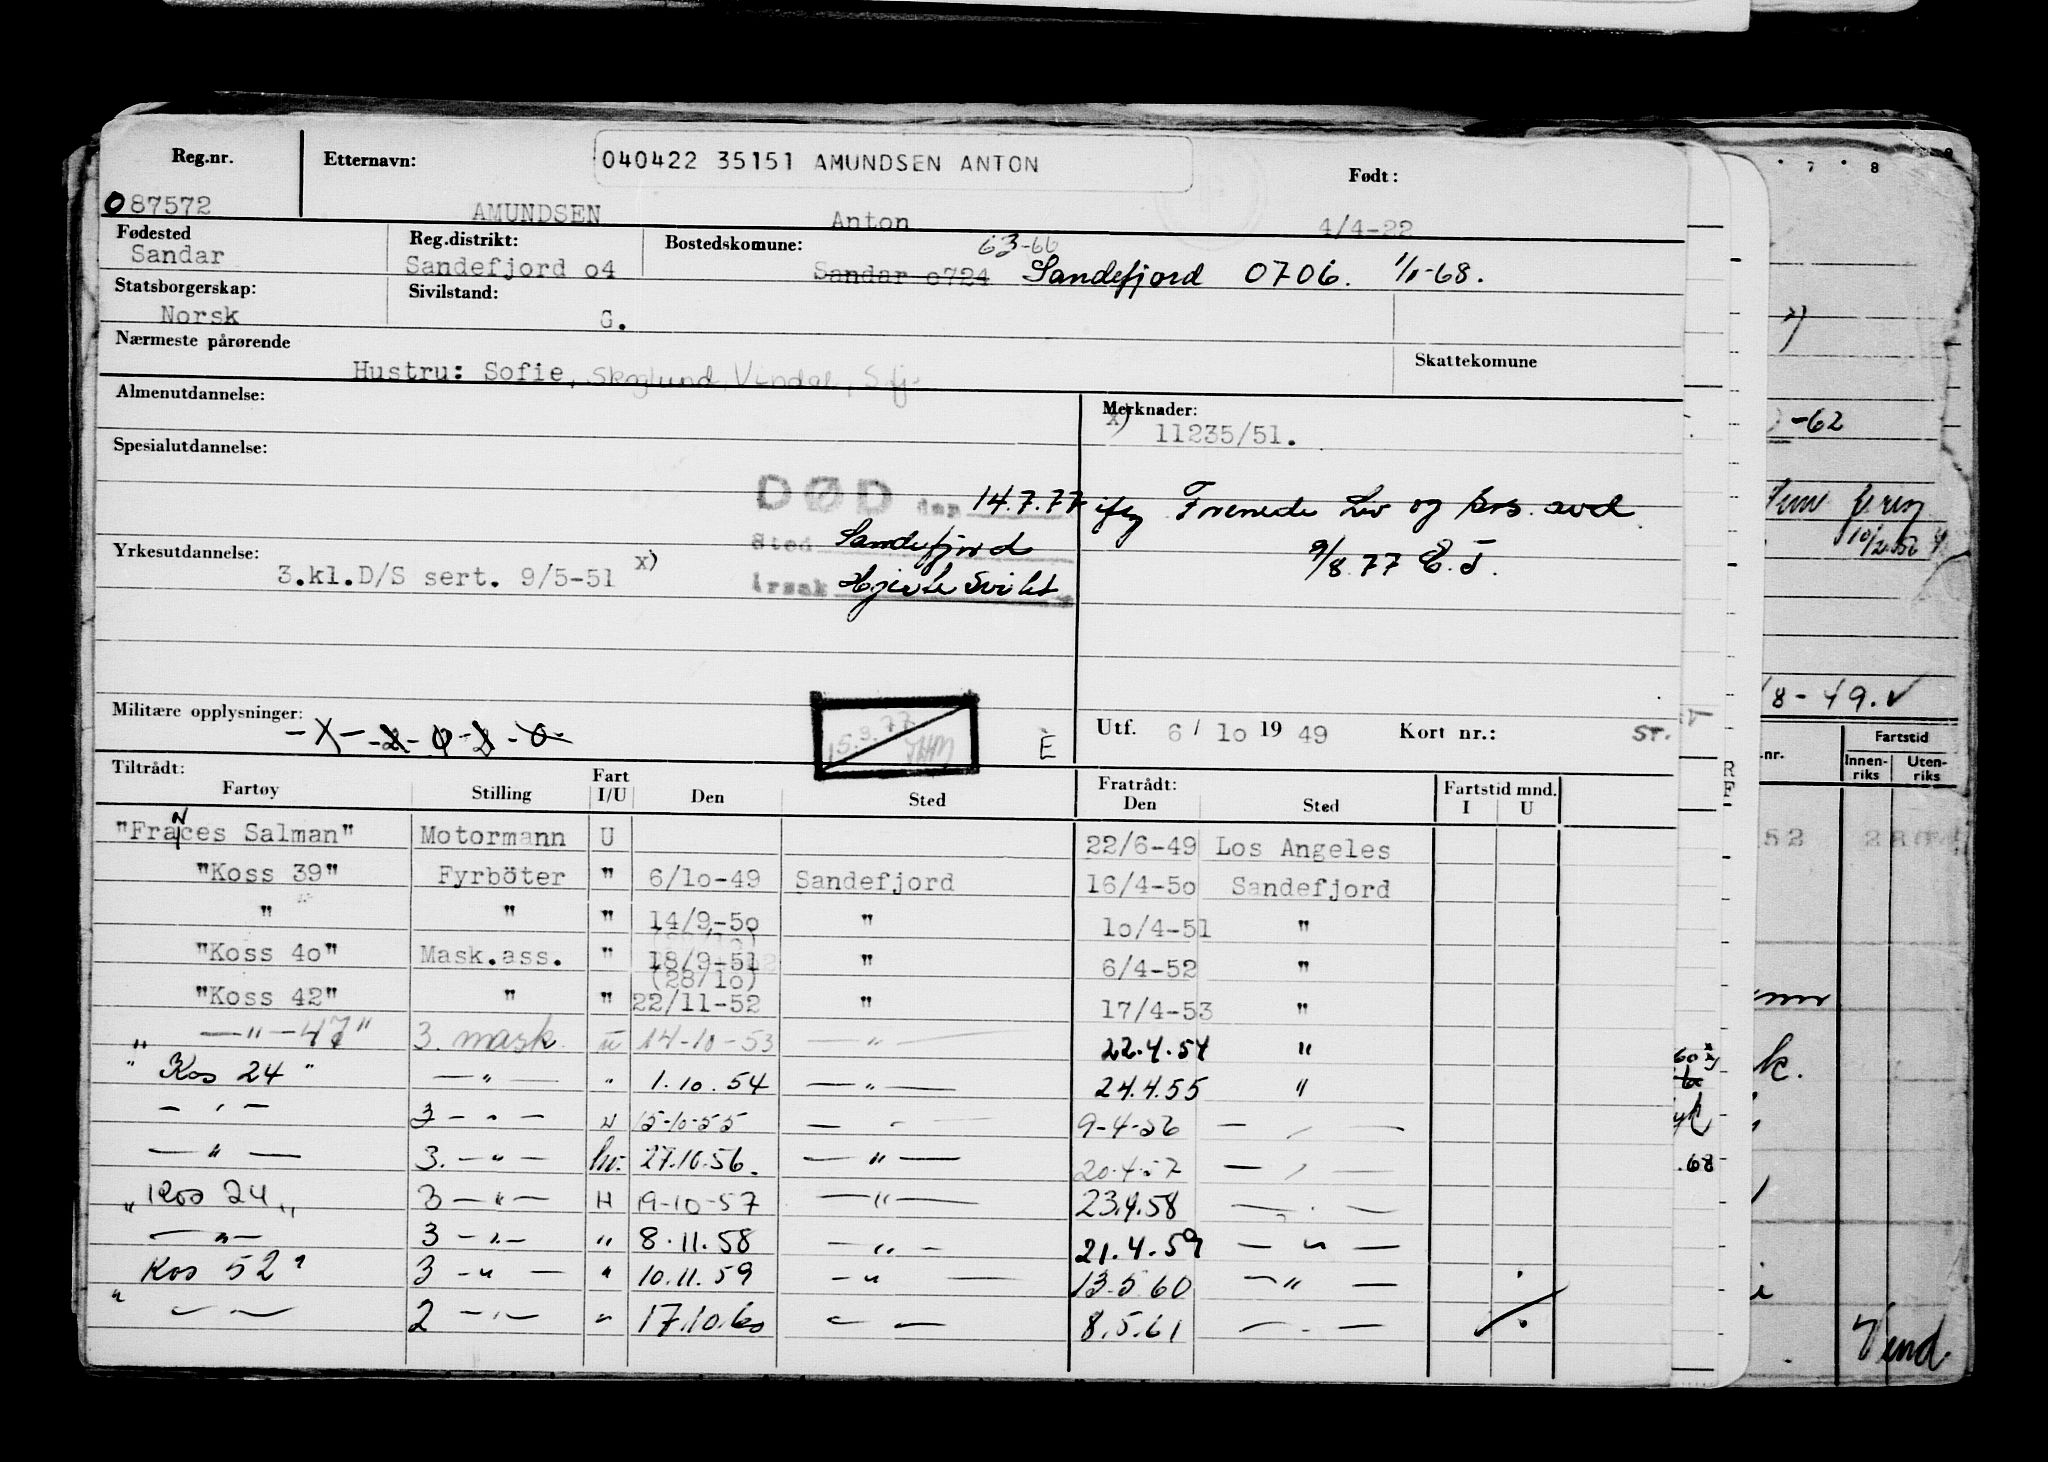 Reg.nr. Etternavn: 040422 35151 AMUNDSEN ANTON Født:
087572 AMUNDSEN Anton 4/4-22
Fødested Reg.distrikt: Bostedskomune: 63-66
Sandar Sandefjord o4 Sandar o724 Sandefjord 0706. 1/1-68.
Statsborgerskap: Sivilstand:
Norsk G.
Nærmeste pårørende Skattekomune
Hustru: Sofie, Skoglund, Vindal, Sfj.
Almenutdannelse: Merknader:
x) 11235/51.
Spesialutdannelse:
DØD den 14.7.77 ifg Trenede Liv og sos. avd.
Sted Sandefjord 9/8.77 E.J.
Yrkesutdannelse:
3.kl.D/S sert. 9/5-51 x) årsak Hjertesvikt
Militære opplysninger: 15.3.77 E Utf. 6/ 1o 19 49 Kort nr.: ST.
Tiltrådt: Fart Fratrådt: Fartstid mnd.
Fartøy Stilling I/U Den Sted Den Sted I U
"Frances Salman" Motormann U 22/6-49 Los Angeles
"Koss 39" Fyrböter " 6/1o-49 Sandefjord 16/4-5o Sandefjord
" " " 14/9-5o " 1o/4-51 "
"Koss 4o" Mask.ass. " 18/9-51 " 6/4-52 "
(28/1o)
"Koss 42" " " 22/11-52 " 17/4-53 "
" —"— 47" 3. mask. u 14-10-53 —"— 22.4.54 "
" Kos 24 " —"— " 1.10.54 —"— 24.4.55 "
—"— 3 —"— " 15-10-55 —"— 9-4-56 —"—
—"— 3. —"— 27.10.56. —"— 20.4.57 —"—
" Kos 24 " 3 —"— H 19-10-57 —"— 23.4.58 —"—
—"— 3 —"— " 8.11.58 —"— 21.4.59 —"—
" Kos 52" 3 —"— " 10.11.59 —"— 13.5.60 —"—
—"— 2 —"— " 17.10.60 —"— 8.5.61 —"—
7 8
-62
10/2.56
8-49.
nr. Fartstid
Innen-riks Uten-riks
R
F
52
k.
.68
Vend